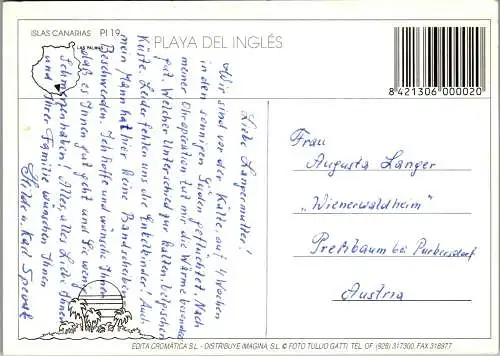 ISLAS CANARIAS PI 19
LAS PALMAS
PLAYA DEL INGLÉS
8 421306 000020
Liebe Langermutter!
Wir sind vor der Kälte, auf 4 Wochen
in den sonnigen Süden geflüchtet. Nach
meiner Ohroperation tut mir die Wärme besonders
gut. Welcher Unterschied zur kalten belgischen
Küste. Leider fehlen uns die Enkelkinder! Auch
mein Mann hat hier keine Bandscheiben
Beschwerden. Ich hoffe und wünsche Ihnen
daß es Ihnen gut geht und Sie wenig
Schmerzen haben! Alles, alles Liebe Ihnen
und Ihrer Familie wünschen Ihnen
Hilde u. Karl
Frau
Augusta Langer
"Wienerwaldheim"
Preßbaum bei Purkersdorf
Austria
EDITA CROMÁTICA S.L. - DISTRIBUYE IMAGINA, S.L. © FOTO TULLIO GATTI TEL. OF. (928) 317300, FAX 318977